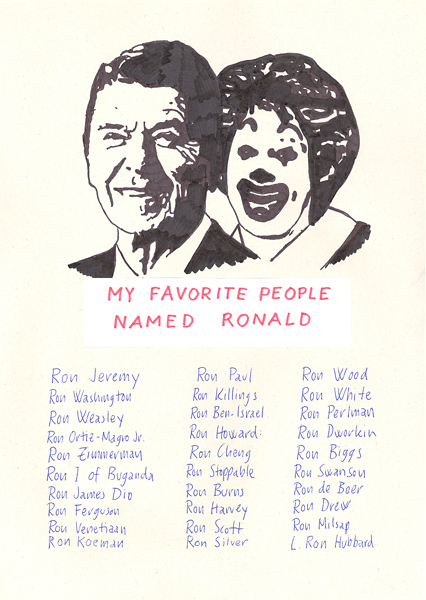 MY FAVORITE PEOPLE
NAMED RONALD
Ron Jeremy
Ron Washington
Ron Weasley
Ron Ortiz-Magro Jr.
Ron Zimmerman
Ron I of Buganda
Ron James Dio
Ron Ferguson
Ron Venetiaan
Ron Koeman
Ron Paul
Ron Killings
Ron Ben-Israel
Ron Howard:
Ron Cheng
Ron Stoppable
Ron Burns
Ron Harvey
Ron Scott
Ron Silver
Ron Wood
Ron White
Ron Perlman
Ron Dworkin
Ron Biggs
Ron Swanson
Ron de Boer
Ron Drew
Ron Milsap
L. Ron Hubbard